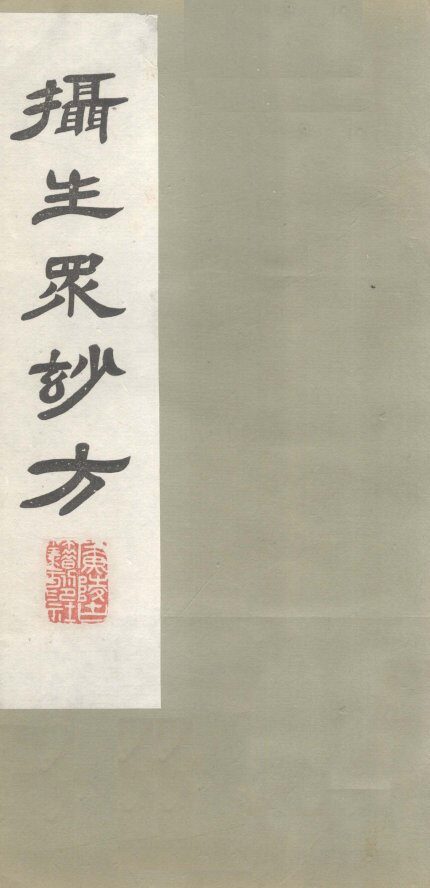 攝生眾玅方